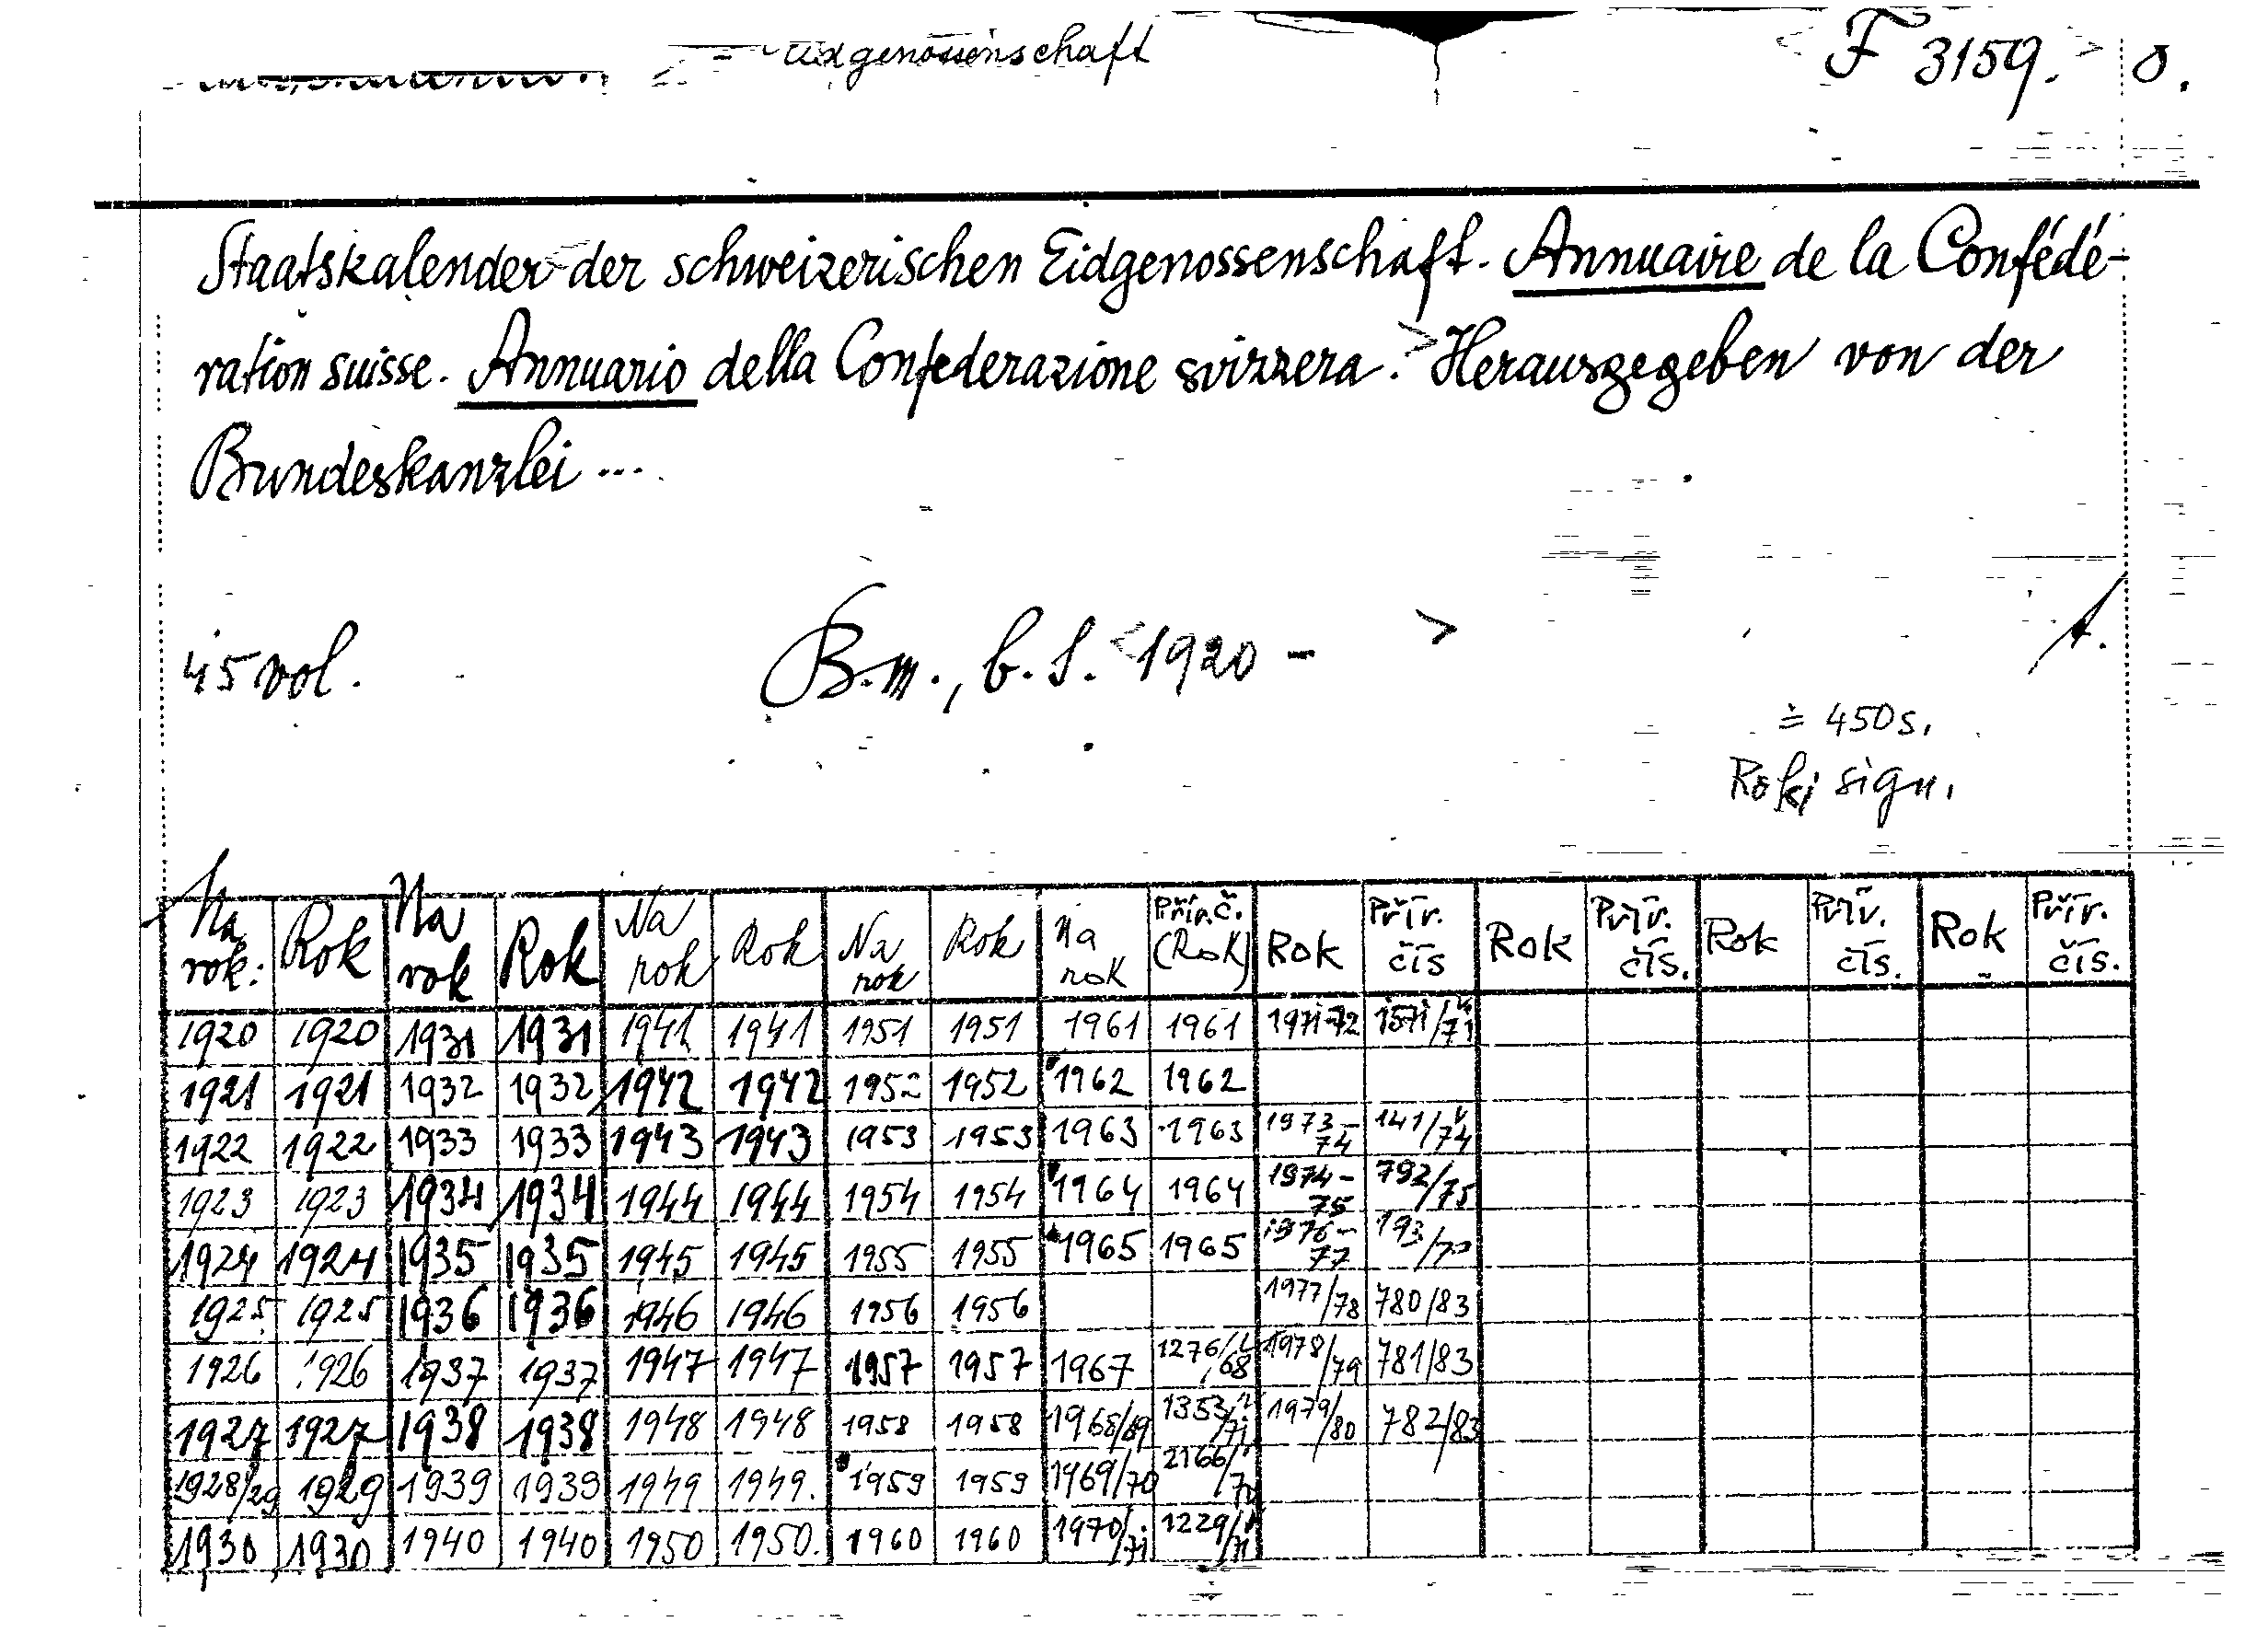 Eidgenossenschaft
F 3159.
Staatskalender der schweizerischen Eidgenossenschaft. Annuaire de la Confédé-
ration suisse. Annuario della Confederazione svizzera. Herausgegeben von der
Bundeskanzlei ...
45 vol. B.m., b.l. <1920 - >
= 450 s.
Roky sign.
Na rok: Rok Na rok Rok Na rok Rok Na rok Rok Na rok Přír.č. (Rok) Rok Přír. čís Rok Přír. čís. Rok Přír. čís. Rok Přír. čís.
1920 1920 1931 1931 1941 1941 1951 1951 1961 1961 1971-72
1921 1921 1932 1932 1942 1942 1952 1952 1962 1962
1922 1922 1933 1933 1943 1943 1953 1953 1963 1963 1973-74 141/74
1923 1923 1934 1934 1944 1944 1954 1954 1964 1964 1974-75 792/75
1924 1924 1935 1935 1945 1945 1955 1955 1965 1965 1976-77
1925 1925 1936 1936 1946 1946 1956 1956 1977/78 780/83
1926 1926 1937 1937 1947 1947 1957 1957 1967 1276/68 1978/79 781/83
1927 1927 1938 1938 1948 1948 1958 1958 1968/69 1353/71 1979/80 782/83
1928/29 1929 1939 1939 1949 1949. 1959 1959 1969/70 2166/70
1930 1930 1940 1940 1950 1950. 1960 1960 1970/71 1229/71